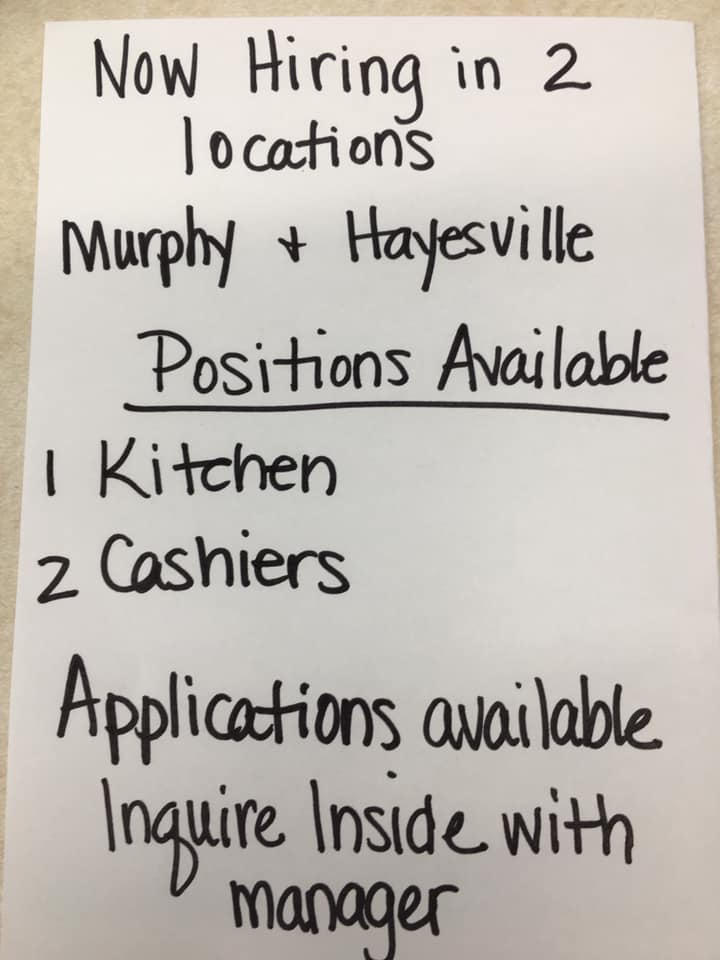 Now Hiring in 2
locations
Murphy + Hayesville
Positions Available
1 Kitchen
2 Cashiers
Applications available
Inquire Inside with
manager